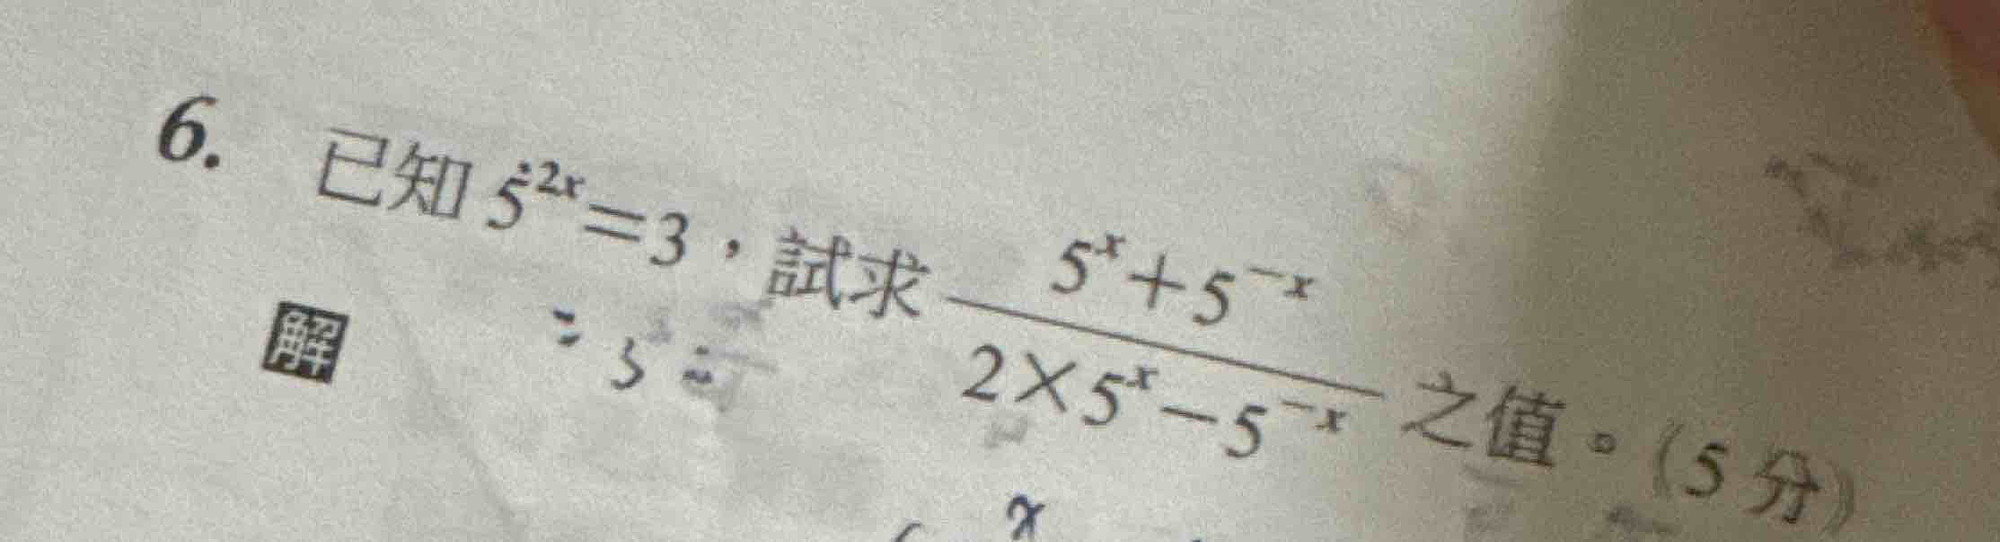 6. 已知 5²ˣ=3，試求 (5ˣ+5⁻ˣ)/(2×5ˣ−5⁻ˣ) 之值。(5分)
解
= 3 =
x